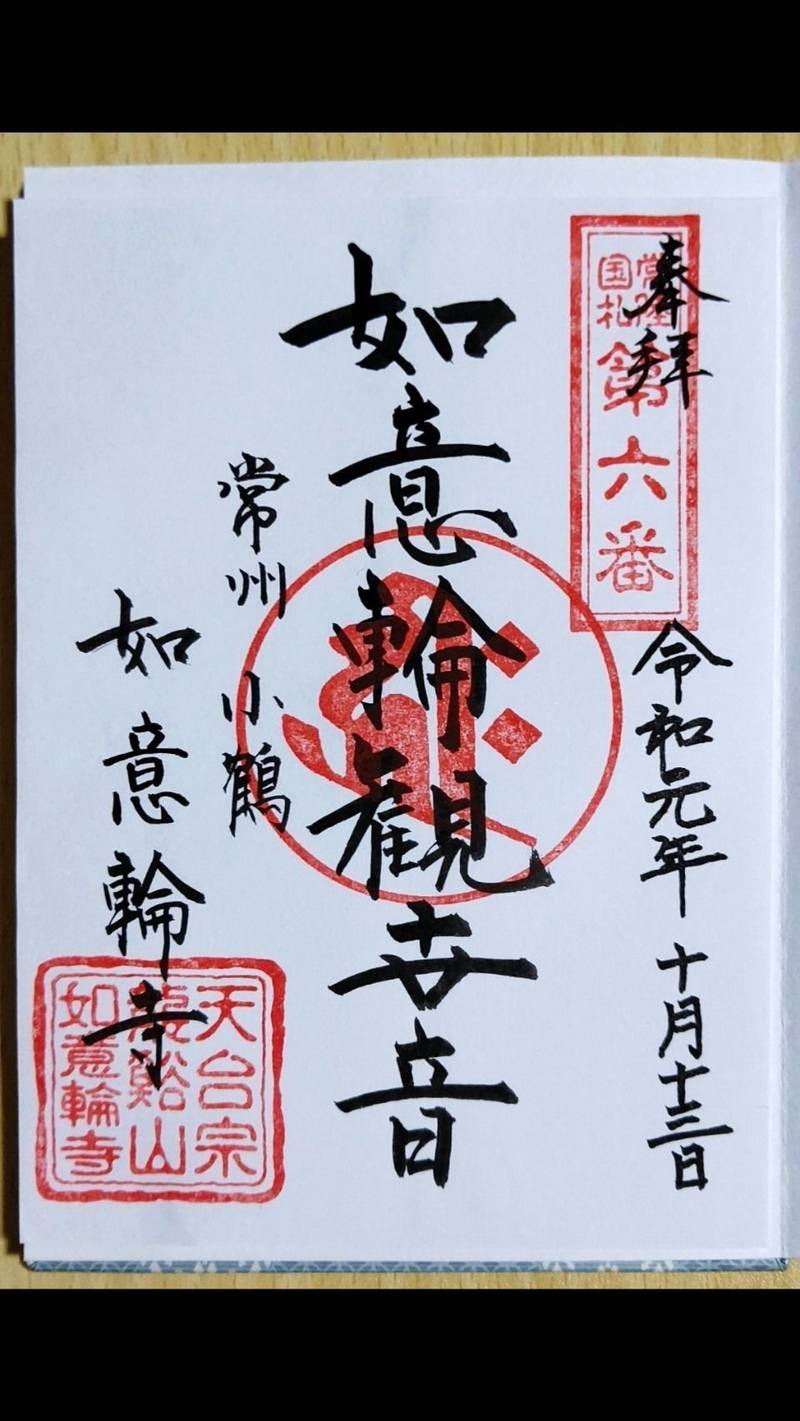 奉拝
常陸
国札
第六番
令和元年 十月十三日
如意輪観世音
常州 小鶴
如意輪寺
天台宗
谿山
如意輪寺